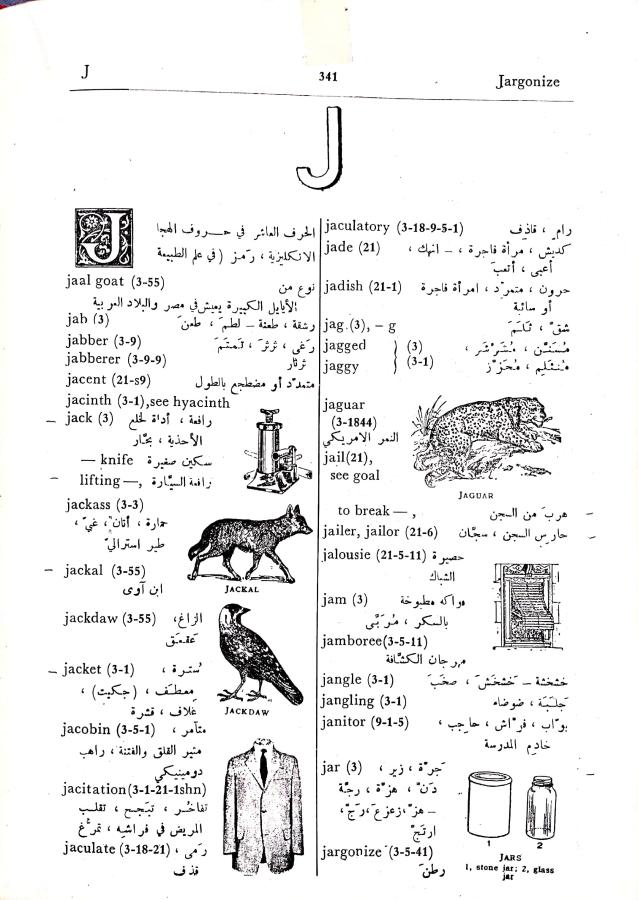 J
341
Jargonize
J
J
الحرف العاشر في حـــروف الهجا
الانكليزية ، رمز ( في علم الطبيعة
jaal goat (3-55) نوع من
الأيايل الكبيرة يعيش في مصر والبلاد العربية
jab (3) رشقة ، طعنة – لطمَ ، طعنَ
jabber (3-9) رغى ، ثرثرَ ، تَمتَمَ
jabberer (3-9-9) ثرثار
jacent (21-s9) متمدّد أو مضطجع بالطول
jacinth (3-1),see hyacinth
jack (3) رافعة ، أداة لخلع
الأحذية ، بحّار
— knife سكين صغيرة
lifting —, رافعة السيّارة
jackass (3-3)
حمارة ، أتان ، غبيّ ،
طير استراليّ
jackal (3-55)
ابن آوى
JACKAL
jackdaw (3-55) الزاغ،
عَقعَق
jacket (3-1) سُترة ،
معطف ، (جكيت) ،
غلاف ، قشرة
JACKDAW
jacobin (3-5-1) متآمر ،
مثير القلق والفتنة ، راهب
دومينيكي
jacitation(3-1-21-1shn)
تفاخُر ، تبَجح ، تقلب
المريض في فراشه ، تمرُّغ
jaculate (3-18-21) رمى ،
قذف
jaculatory (3-18-9-5-1) رامٍ ، قاذِف
jade (21) كديش ، مرأة فاجرة ، – انهك ،
أعيى ، أتعبَ
jadish (21-1) حرون ، متمرّد ، امرأة فاجرة
أو سائبة
jag (3), – g شقّ ، ثَلَمَ
jagged (3) مُسَنَّن ، مُشَرْشَر ،
jaggy (3-1) مُنثَلِم ، مُحَزَّز
jaguar
(3-1844)
النمر الامريكي
JAGUAR
jail(21),
see goal
to break —, هربَ من السجن
jailer, jailor (21-6) حارس السجن ، سجّان
jalousie (21-5-11) حصيرة
الشباك
jam (3) فواكه مطبوخة
بالسكر ، مُربَّى
jamboree(3-5-11)
مهرجان الكشّافة
jangle (3-1) خشخشة – خشخَشَ ، صخَبَ
jangling (3-1) جَلَبَة ، ضوضاء
janitor (9-1-5) بوّاب ، فرّاش ، حاجب ،
خادم المدرسة
jar (3) جرّة ، زير ،
دَنّ ، هزّة ، رجّة
– هزّ ، زعزعَ ، رَجّ،
ارتجّ
jargonize (3-5-41)
رطنَ
1 2
JARS
1, stone jar; 2, glass
jar